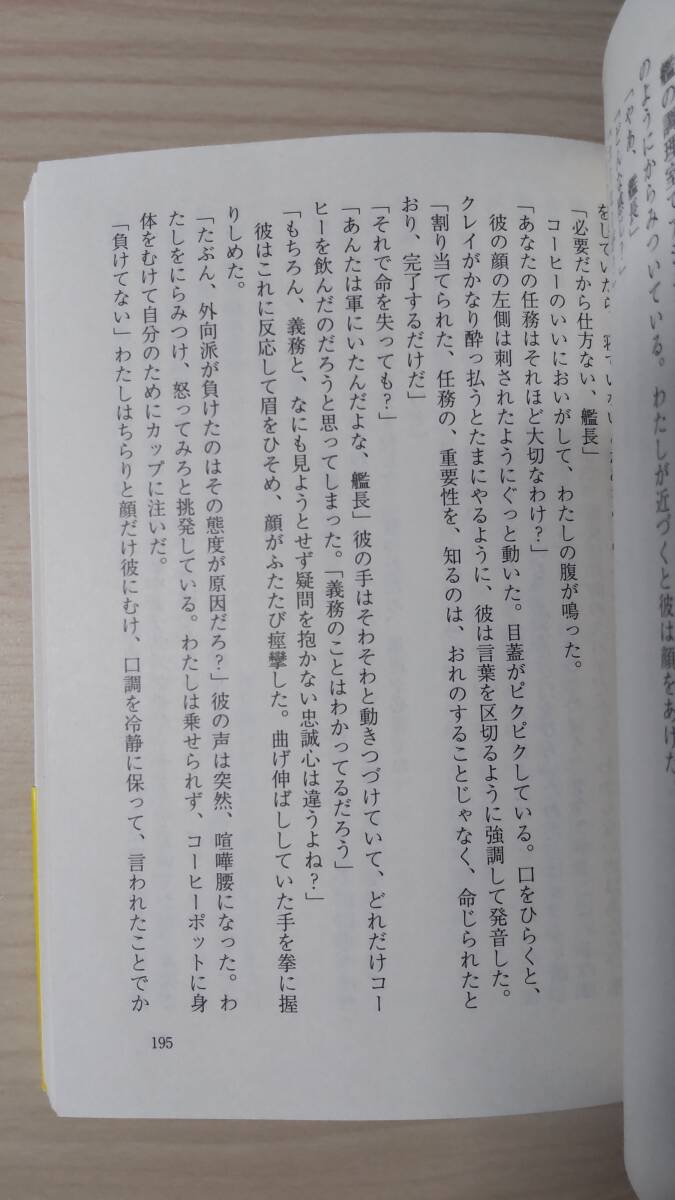 艦の調理室で
のようにからみついている。わたしが近づくと彼は顔をあげた
「やあ、艦長」
をしていたら、寝ていない
「必要だから仕方ない、艦長」
コーヒーのいいにおいがして、わたしの腹が鳴った。
「あなたの任務はそれほど大切なわけ？」
彼の顔の左側は刺されたようにぐっと動いた。目蓋がピクピクしている。口をひらくと、
クレイがかなり酔っ払うとたまにやるように、彼は言葉を区切るように強調して発音した。
「割り当てられた、任務の、重要性を、知るのは、おれのすることじゃなく、命じられたと
おり、完了するだけだ」
「それで命を失っても？」
「あんたは軍にいたんだよな、艦長」彼の手はそわそわと動きつづけていて、どれだけコー
ヒーを飲んだのだろうと思ってしまった。「義務のことはわかってるだろう」
「もちろん、義務と、なにも見ようとせず疑問を抱かない忠誠心は違うよね？」
彼はこれに反応して眉をひそめ、顔がふたたび痙攣した。曲げ伸ばししていた手を拳に握
りしめた。
「たぶん、外向派が負けたのはその態度が原因だろ？」彼の声は突然、喧嘩腰になった。わ
たしをにらみつけ、怒ってみろと挑発している。わたしは乗せられず、コーヒーポットに身
体をむけて自分のためにカップに注いだ。
「負けてない」わたしはちらりと顔だけ彼にむけ、口調を冷静に保って、言われたことでか
195